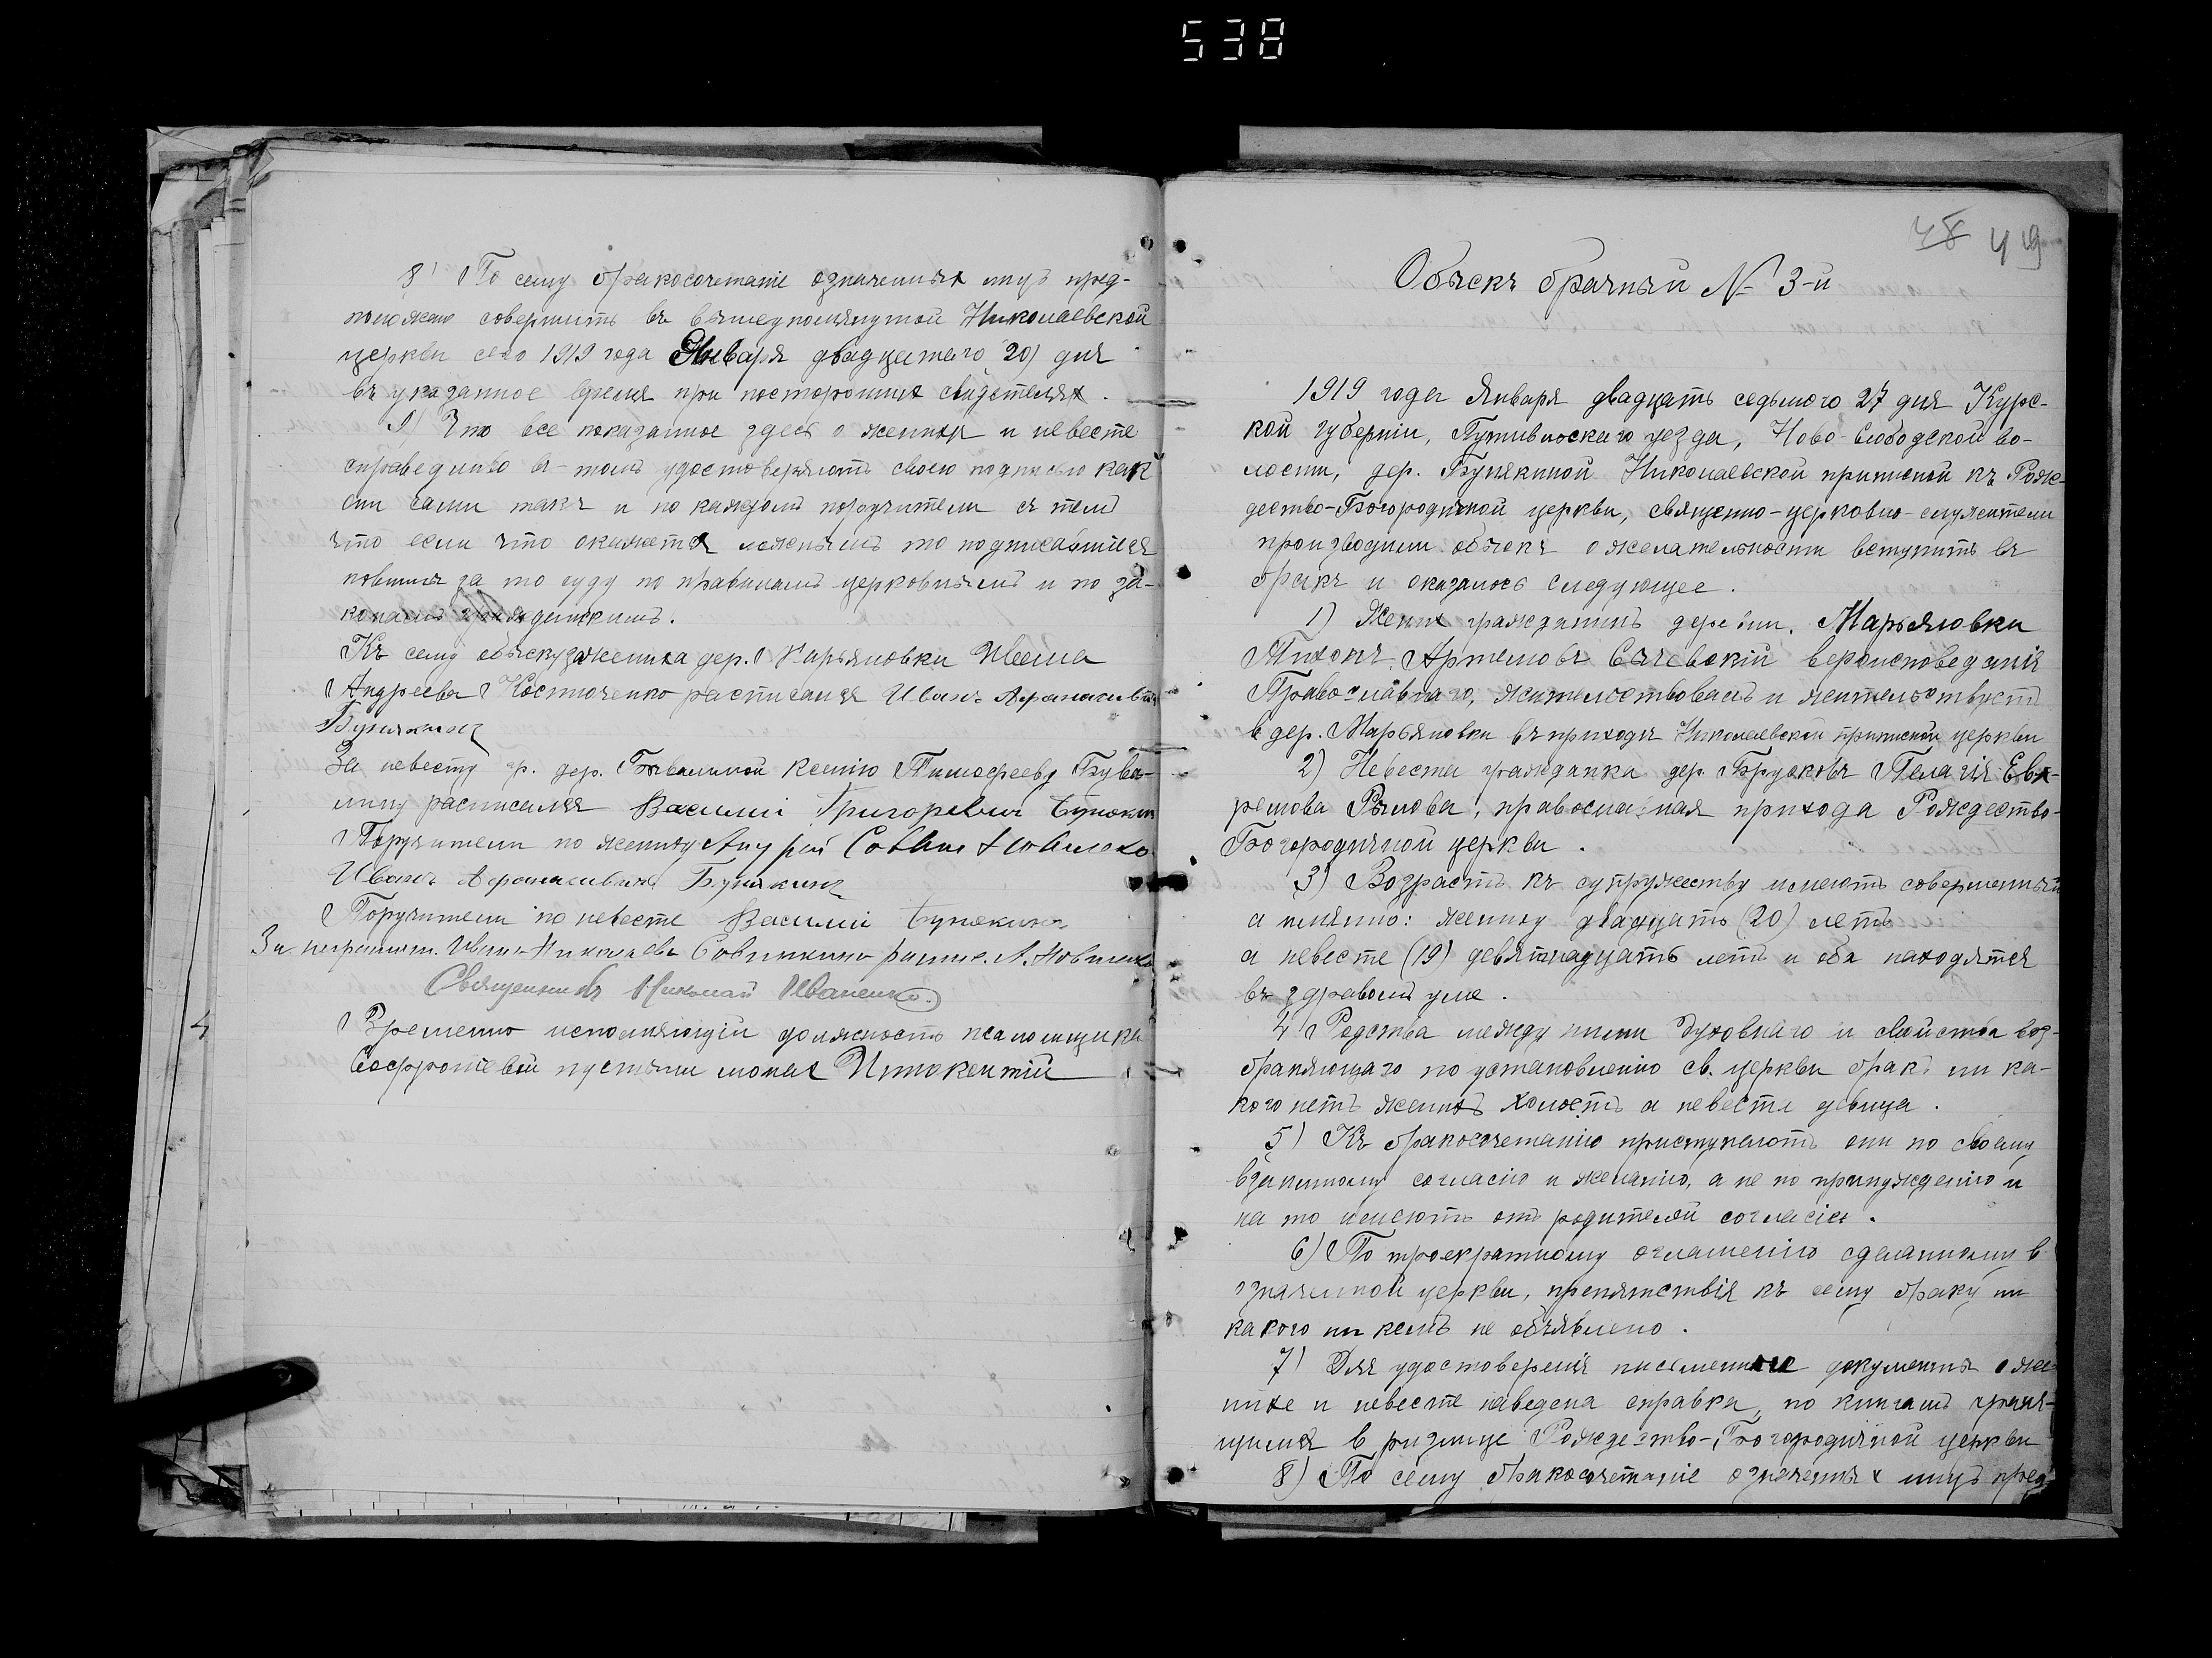 538
8) По сему бракосочетаніе означенных лицъ пред-
положено совершить въ вышеупомянутой Николаевской
церкви сего 1919 года Января двадцатаго 20) дня
въ указанное время при постороннихъ свидетелях.
9) Что все показанное здесь о женихе и невесте
справедливо в-томъ удостоверяютъ своею подписью как
они сами такъ и по каждомъ поручители съ темъ
что если что окажется ложнымъ то подписавшіеся
повинны за то суду по правиламъ церковнымъ и по за-
конамъ гражданскимъ.
Къ сему обыску жениха дер. Марьяновки Ивана
Андреева Костюченко расписался Иванъ Афанасьевичъ
Бунякинъ
За невесту гр. дер. Ксенію Тимофееву Бува-
лину расписался Василій Григоревич Бунякин
Поручители по жениху Андрей
Иванъ Афанасьевичъ Бунякинъ
Поручители по невесте Василій Бунякинъ
За неграмотн. Ивана Николаева Савинкина распис. А. Новиков
Священникъ Николай Иваненко.
Временно исполняющій должность псаломщика
Софроніевой пустыни монах Иннокентій
48 49
Обыскъ брачный № 3-й
1919 года Января двадцать седьмого 27 дня Курс-
кой губерніи, Путивльскаго уезда, Ново-Слободской во-
лости, дер. Бунякиной Николаевской приписной къ Рож-
дество-Богородичной церкви, священно-церковно-служители
производили обыскъ о желательности вступить въ
бракъ и оказалось следующее.
1) Жених гражданинъ деревни. Марьяновки
Тихонъ Артемовъ Сычевскій вероисповеданія
Православнаго, жительствовалъ и жительствуетъ
в дер. Марьяновки въ приходе Николаевской приписной церкви
2) Невеста гражданка дер. Брусковъ Пелагія Евх-
ремова Рылова, православная прихода Рождество-
Богородичной церкви.
3) Возрастъ къ супружеству имеютъ совершенный
а именно: жениху двадцать (20) летъ
а невесте (19) девятнадцать летъ и оба находятся
въ здравомъ уме.
4) Родства между ними духовнаго и свойства воз-
браняющаго по установленію св. церкви брак ни ка-
кого нетъ женихъ холостъ а невеста девица.
5) Къ бракосочетанію приступаютъ они по своему
взаимному согласію и желанію, а не по принужденію и
на то имеютъ отъ родителей согласіе.
6) По троекратному оглашенію сделанному в
означенной церкви, препятствія къ сему браку ни
какого ни кемъ не объявлено.
7) Для удостоверенія письменные документы о же-
нихе и невесте наведена справка, по книгамъ храня-
щимся в ризнице Рождество-Богородичной церкви
8) По сему бракосочетаніе означеных лицъ пред-